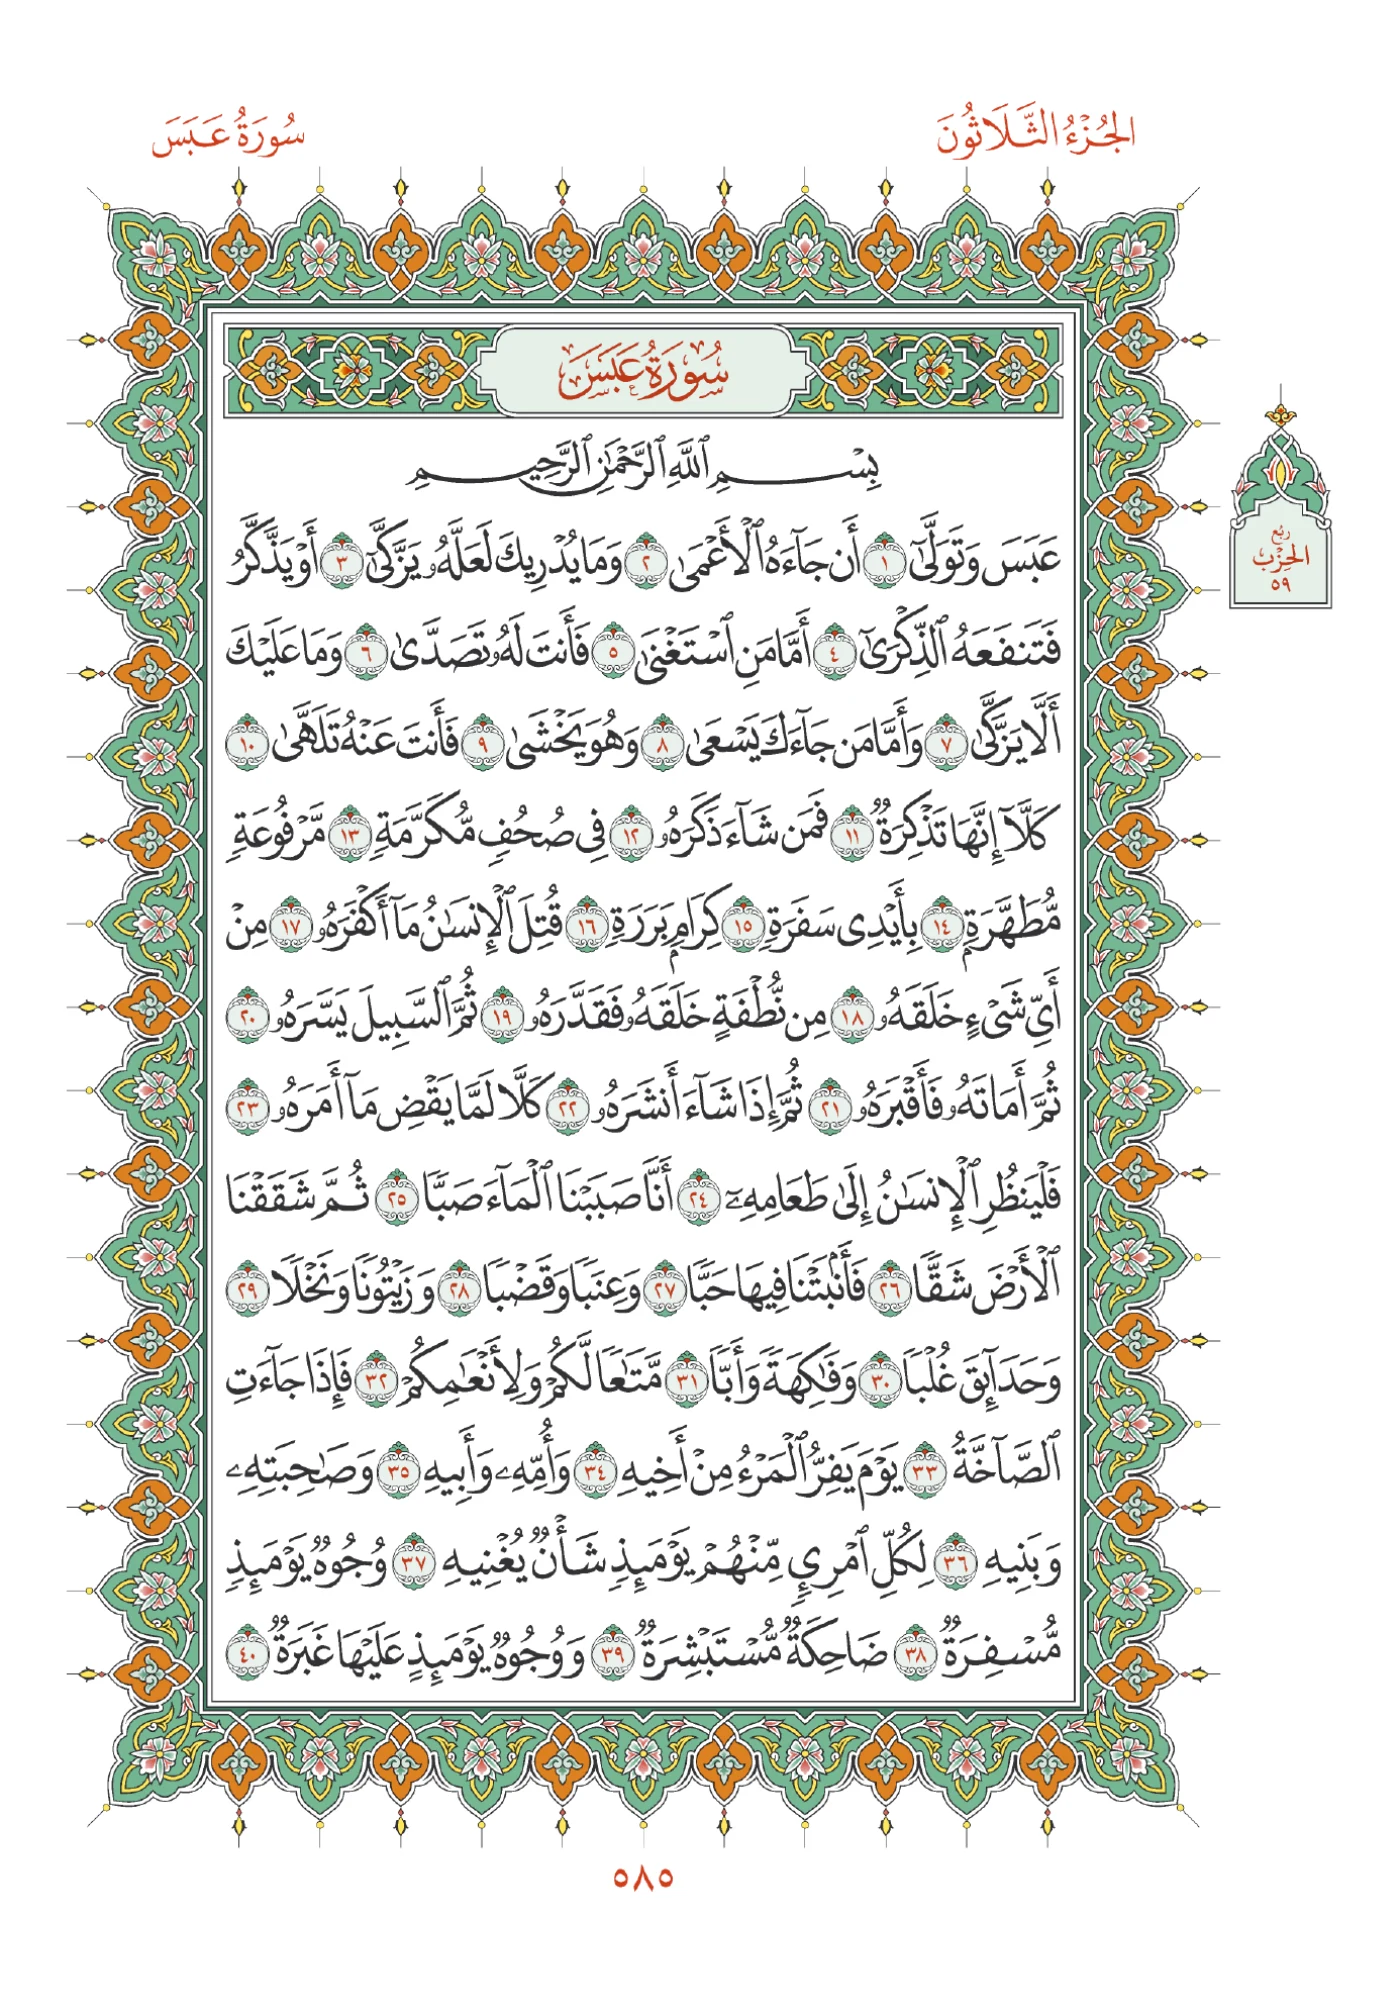 الجُزْءُ الثَّلَاثُونَ
سُورَةُ عَبَسَ
سُورَةُ عَبَسَ
بِسْمِ ٱللَّهِ ٱلرَّحْمَٰنِ ٱلرَّحِيمِ
عَبَسَ وَتَوَلَّىٰٓ ١ أَن جَآءَهُ ٱلْأَعْمَىٰ ٢ وَمَا يُدْرِيكَ لَعَلَّهُۥ يَزَّكَّىٰٓ ٣ أَوْ يَذَّكَّرُ
فَتَنفَعَهُ ٱلذِّكْرَىٰٓ ٤ أَمَّا مَنِ ٱسْتَغْنَىٰ ٥ فَأَنتَ لَهُۥ تَصَدَّىٰ ٦ وَمَا عَلَيْكَ
أَلَّا يَزَّكَّىٰ ٧ وَأَمَّا مَن جَآءَكَ يَسْعَىٰ ٨ وَهُوَ يَخْشَىٰ ٩ فَأَنتَ عَنْهُ تَلَهَّىٰ ١٠
كَلَّآ إِنَّهَا تَذْكِرَةٌ ١١ فَمَن شَآءَ ذَكَرَهُۥ ١٢ فِى صُحُفٍ مُّكَرَّمَةٍ ١٣ مَّرْفُوعَةٍ
مُّطَهَّرَةٍۭ ١٤ بِأَيْدِى سَفَرَةٍ ١٥ كِرَامٍۭ بَرَرَةٍ ١٦ قُتِلَ ٱلْإِنسَٰنُ مَآ أَكْفَرَهُۥ ١٧ مِنْ
أَىِّ شَىْءٍ خَلَقَهُۥ ١٨ مِن نُّطْفَةٍ خَلَقَهُۥ فَقَدَّرَهُۥ ١٩ ثُمَّ ٱلسَّبِيلَ يَسَّرَهُۥ ٢٠
ثُمَّ أَمَاتَهُۥ فَأَقْبَرَهُۥ ٢١ ثُمَّ إِذَا شَآءَ أَنشَرَهُۥ ٢٢ كَلَّا لَمَّا يَقْضِ مَآ أَمَرَهُۥ ٢٣
فَلْيَنظُرِ ٱلْإِنسَٰنُ إِلَىٰ طَعَامِهِۦٓ ٢٤ أَنَّا صَبَبْنَا ٱلْمَآءَ صَبًّا ٢٥ ثُمَّ شَقَقْنَا
ٱلْأَرْضَ شَقًّا ٢٦ فَأَنۢبَتْنَا فِيهَا حَبًّا ٢٧ وَعِنَبًا وَقَضْبًا ٢٨ وَزَيْتُونًا وَنَخْلًا ٢٩
وَحَدَآئِقَ غُلْبًا ٣٠ وَفَٰكِهَةً وَأَبًّا ٣١ مَّتَٰعًا لَّكُمْ وَلِأَنْعَٰمِكُمْ ٣٢ فَإِذَا جَآءَتِ
ٱلصَّآخَّةُ ٣٣ يَوْمَ يَفِرُّ ٱلْمَرْءُ مِنْ أَخِيهِ ٣٤ وَأُمِّهِۦ وَأَبِيهِ ٣٥ وَصَٰحِبَتِهِۦ
وَبَنِيهِ ٣٦ لِكُلِّ ٱمْرِئٍ مِّنْهُمْ يَوْمَئِذٍ شَأْنٌ يُغْنِيهِ ٣٧ وُجُوهٌ يَوْمَئِذٍ
مُّسْفِرَةٌ ٣٨ ضَاحِكَةٌ مُّسْتَبْشِرَةٌ ٣٩ وَوُجُوهٌ يَوْمَئِذٍ عَلَيْهَا غَبَرَةٌ ٤٠
رُبْع
الحِزْب
٥٩
٥٨٥